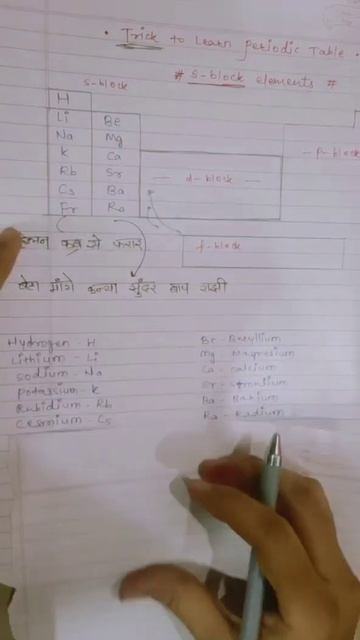 • Trick to Learn periodic Table •
# s-block elements #
s-block
H
Li Be
Na Mg
K Ca
Rb Sr
Cs Ba
Fr Ra
— d-block —
— p-block
f-block
कब से फरार
बेटा मांगे कन्या सुंदर बाप राजी
Hydrogen - H
Lithium - Li
Sodium - Na
Potassium - K
Rubidium - Rb
Cesmium - Cs
Be - Beryllium
Mg - Magnesium
Ca - calcium
Sr - Strontium
Ba - Barium
Ra - Radium